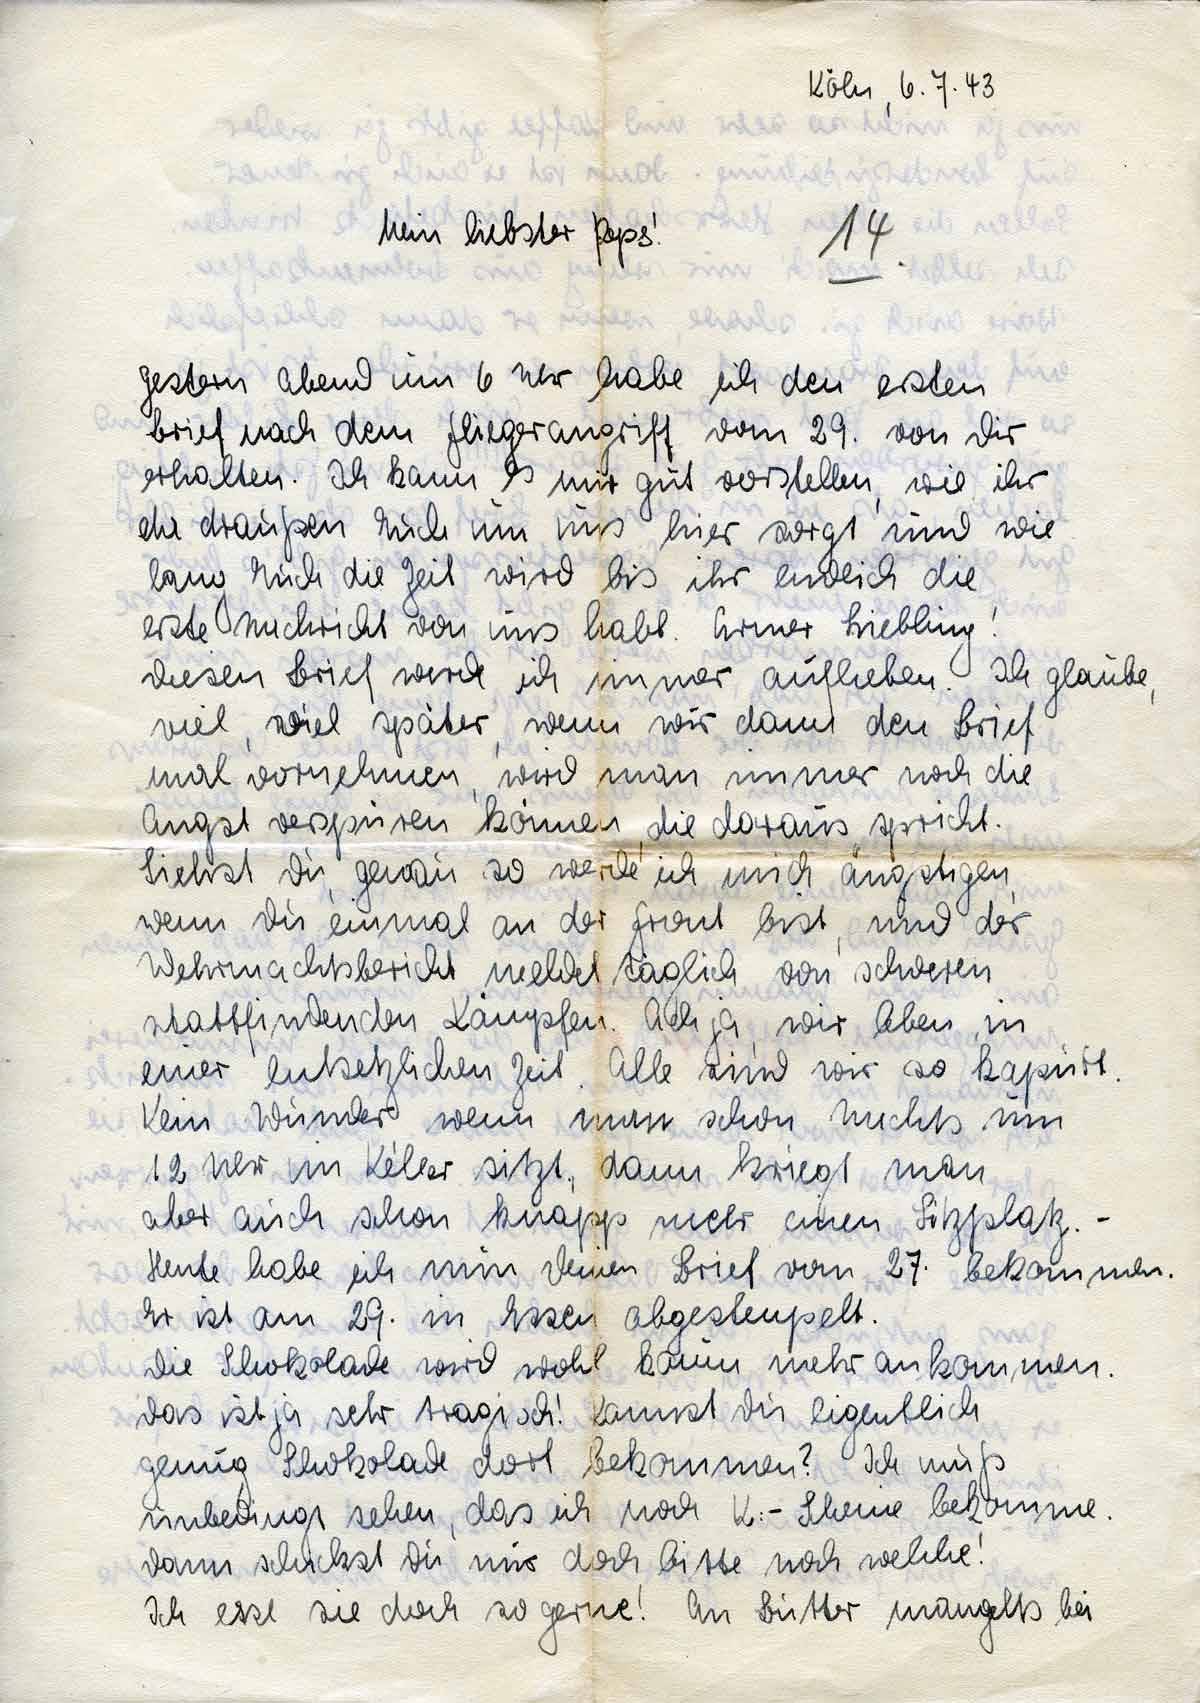 Köln, 6.7.43
Mein liebster Peps!
14.
Gestern Abend um 6 Uhr habe ich den ersten
Brief nach dem Fliegerangriff vom 29. von Dir
erhalten. Ich kann es mir gut vorstellen, wie ihr
da draußen Euch um uns hier sorgt und wie
lang Euch die Zeit wird bis ihr endlich die
erste Nachricht von uns habt. Armer Liebling!
Diesen Brief werde ich immer aufheben. Ich glaube,
viel, viel später, wenn wir dann den Brief
mal vornehmen, wird man immer noch die
Angst verspüren können, die daraus spricht.
Siehst Du, genau so werde ich mich ängstigen,
wenn Du einmal an der Front bist, und der
Wehrmachtsbericht meldet täglich von schweren
stattfindenden Kämpfen. Ach ja, wir leben in
einer entsetzlichen Zeit. Alle sind wir so kaputt.
Kein Wunder wenn man schon nachts um
12 Uhr im Keller sitzt, dann kriegt man
aber auch schon knapp mehr einen Sitzplatz. -
Heute habe ich nun Deinen Brief vom 27. bekommen.
Er ist am 29. in Essen abgestempelt.
Die Schokolade wird wohl kaum mehr ankommen.
Das ist ja sehr tragisch! Kannst Du eigentlich
genug Schokolade dort bekommen? Ich muß
unbedingt sehen, das ich noch K.- Scheine bekomme.
Dann schickst Du mir doch bitte noch welche!
Ich esse sie doch so gerne! An Butter mangelts bei